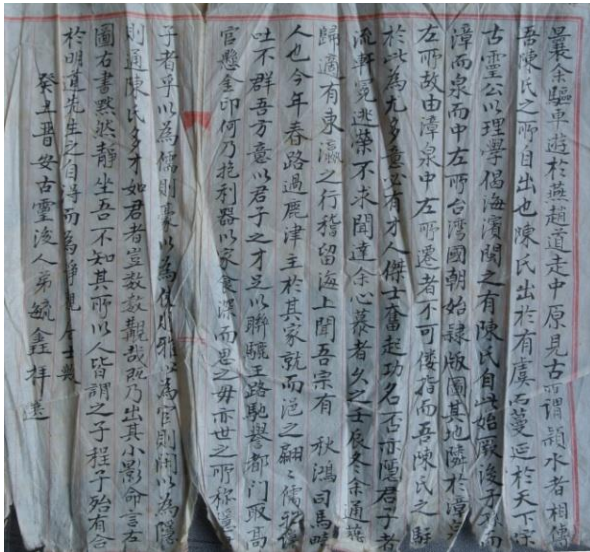 曩余驅車遊於燕趙道走中原見古所謂潁水者相傳
吾陳氏之所自出也陳氏出於有虞而蔓延於天下
古靈公以理學倡海濱閩之有陳氏自此始厥後子而
漳而泉而中左所台灣國朝始隸版圖其地隣於漳泉
左所故由漳泉中左所遷者不可僂指而吾陳氏之
於此為尤多意必有才人傑士奮起功名否亦隱君子者
流軒冕逃榮不求聞達余心慕者久之壬辰冬余通
歸適有東瀛之行稽留海上聞吾宗有 秋鴻司馬
人也今年春路過鹿津主於其家就而浥之翩〻儒雅
吐不群吾方意以君子之才足以聯驪王路馳譽都門取高
官懸金印何乃抱利器以家食深而思之毋亦世之所稱隱
子者乎以為儒則豪以為住則雅以為官則閒以為隱
則通陳氏多才如君者豈數數觀哉既乃出其小影命言左
圖右書默然靜坐吾不知其所以人皆謂之子程子殆有合
於明道先生之自得而為靜觀人士歟
癸丑晋安古靈後人弟毓鑫拜題